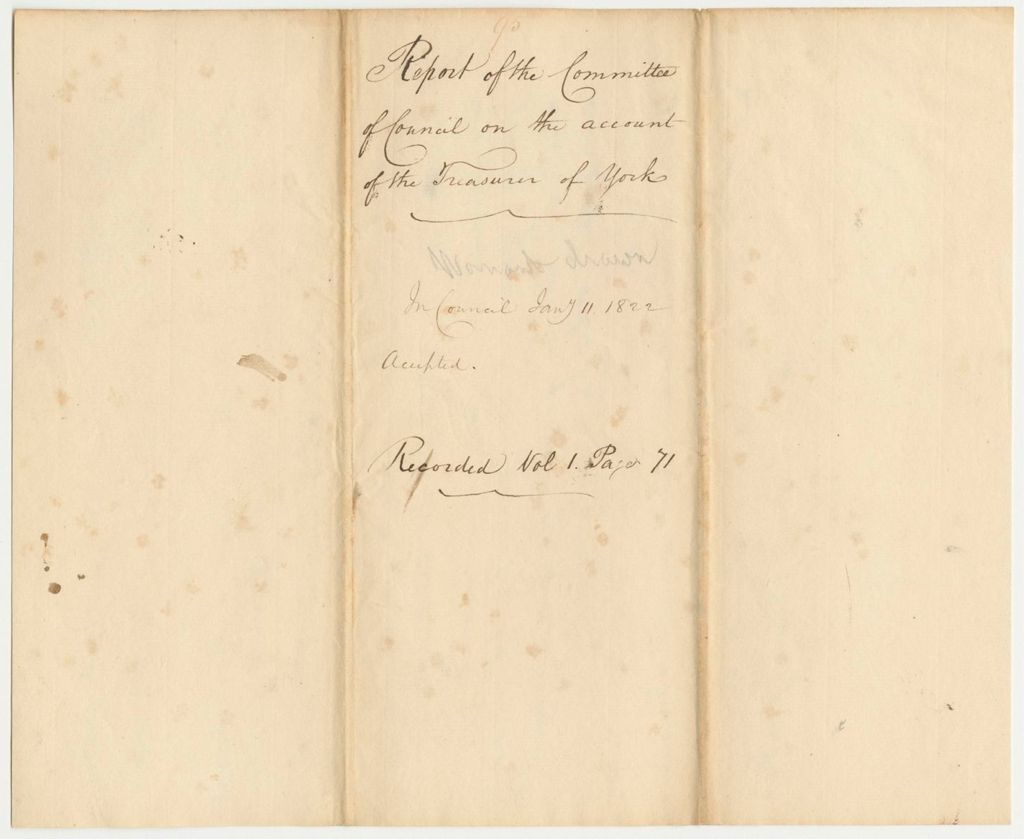 Report of the Committee
of Council on the account
of the Treasurer of York
In Council Jany 11 1822
Accepted.
Recorded Vol 1. Page 71